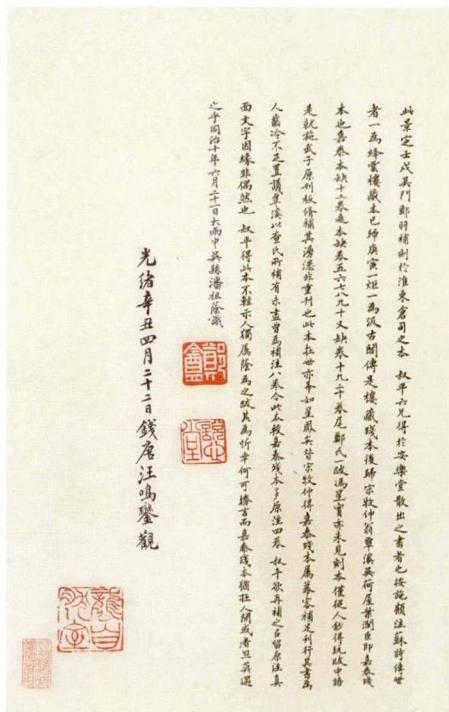 此景定壬戌吳門鄭羽補刻於淮東倉司之本 叔平六兄得於安樂堂散出之書者也按施顧注蘇詩傳世
者一為絳雲樓藏本已歸庚寅一炬一為汲古閣傳是樓藏殘本後歸宋牧仲翁覃溪吳荷屋葉潤臣即嘉泰殘
本也嘉泰本缺十二卷此本缺卷五六七八九十又缺卷十九二十卷尾鄭氏一跋馮星實亦未見刻本僅從人鈔得玩跋中語
是就施武子原刊板脩補其漫漶非重刊也此本在世亦希如星鳳矣昔宋牧仲得嘉泰殘本屬幕客補足刊行其書為
人齒冷不足置議覃溪以查氏所補有未盡曾為補注八卷今此本較嘉泰殘本多原注四卷 叔平欲再補之以留原注真
面文字因緣非偶然也 叔平得此本不輕示人獨屬蔭為之跋其為忻幸何可勝言而嘉泰殘本猶在人間或者旦莫遇
之乎同治十年六月二十一日大雨中吳縣潘祖蔭識
鄭盦
光緒辛丑四月二十二日錢唐汪鳴鑾觀